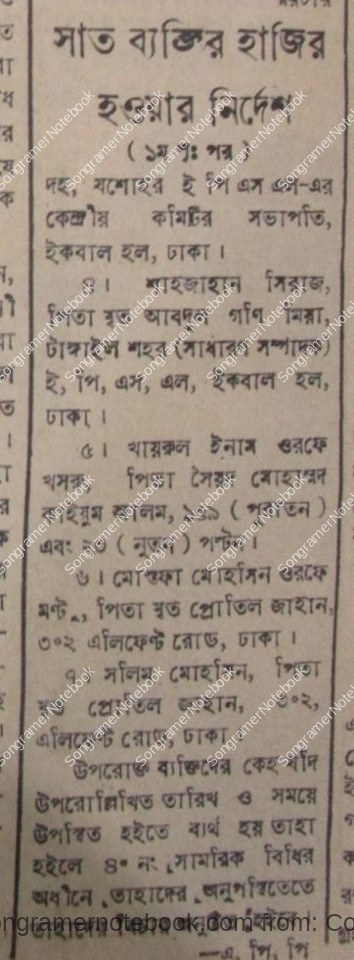 সাত ব্যক্তির হাজির
হওয়ার নির্দেশ
( ১ম পৃঃ পর )
দহ, যশোহর ই পি এস এল-এর
কেন্দ্রীয় কমিটির সভাপতি,
ইকবাল হল, ঢাকা ।
৪। শাহজাহান সিরাজ,
পিতা মৃত আবদুল গণি মিয়া,
টাঙ্গাইল শহর (সাধারণ সম্পাদক)
ই, পি, এস, এল, ইকবাল হল,
ঢাকা ।
৫। খায়রুল ইনাম ওরফে
খসরু, পিতা সৈয়দ মোহাম্মদ
কাইয়ুম কালাম, ( পুরাতন )
এবং ২৩ ( নুতন ) পল্টন ।
৬। মোস্তফা মোহসিন ওরফে
মন্টু, পিতা মৃত জাহান,
৩০২ এলিফেন্ট রোড, ঢাকা ।
৭। সলিম মোহসিন, পিতা
মৃত জাহান, ৩০২,
এলিফেন্ট রোড, ঢাকা ।
উপরোক্ত ব্যক্তিদের কেহ যদি
উপরোল্লিখিত তারিখ ও সময়ে
উপস্থিত হইতে ব্যর্থ হয় তাহা
হইলে ৪০ নং সামরিক বিধির
অধীনে তাহাদের অনুপস্থিতিতে
তাহাদের
—এ, পি, পি
ongramernotebook.com from: Co
SongramerNotebook